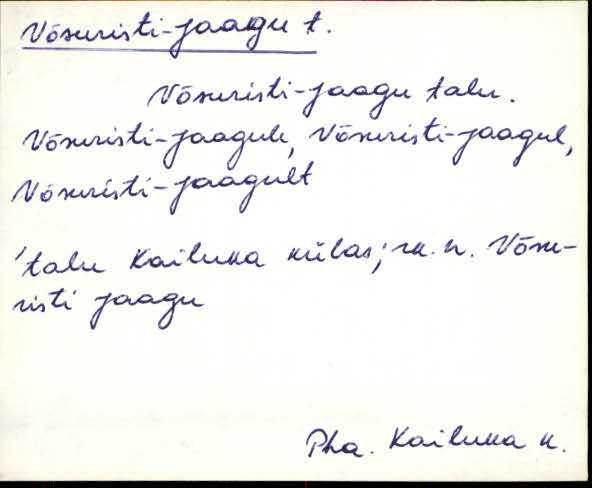 Võsuristi-jaagu t.
Võsuristi-jaagu talu.
Võsuristi-jaagule, Võsuristi-jaagul,
Võsuristi-jaagult
'talu Kailuka külas; rk. n. Võsu-
risti jaagu
Pha. Kailuka k.